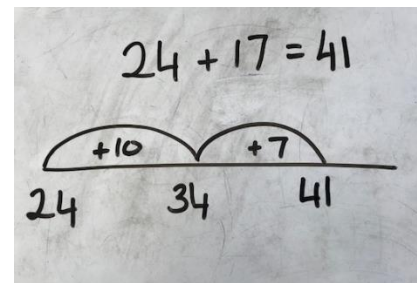 24 + 17 = 41
+10 +7
24 34 41